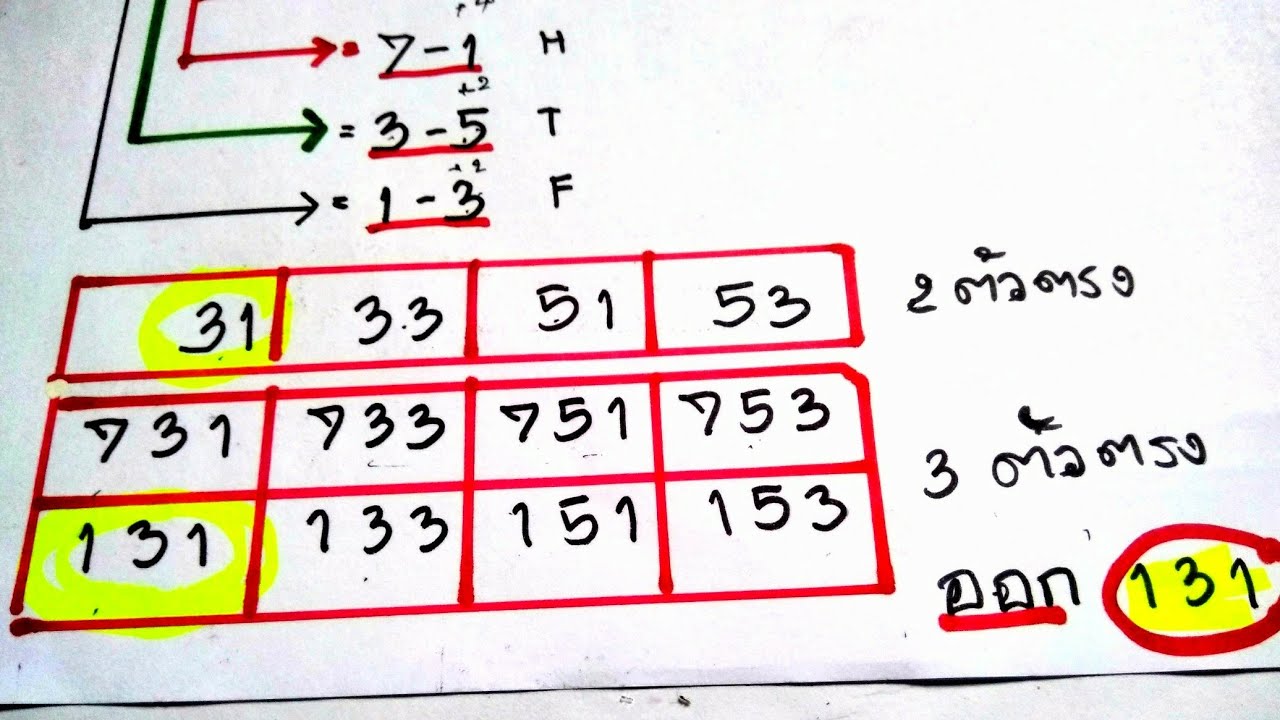 +4
= 7-1 H
+2
= 3-5 T
+2
= 1-3 F
31 3.3 51 53 2 ตัวตรง
731 733 751 753
3 ตัวตรง
131 133 151 153
ออก 131